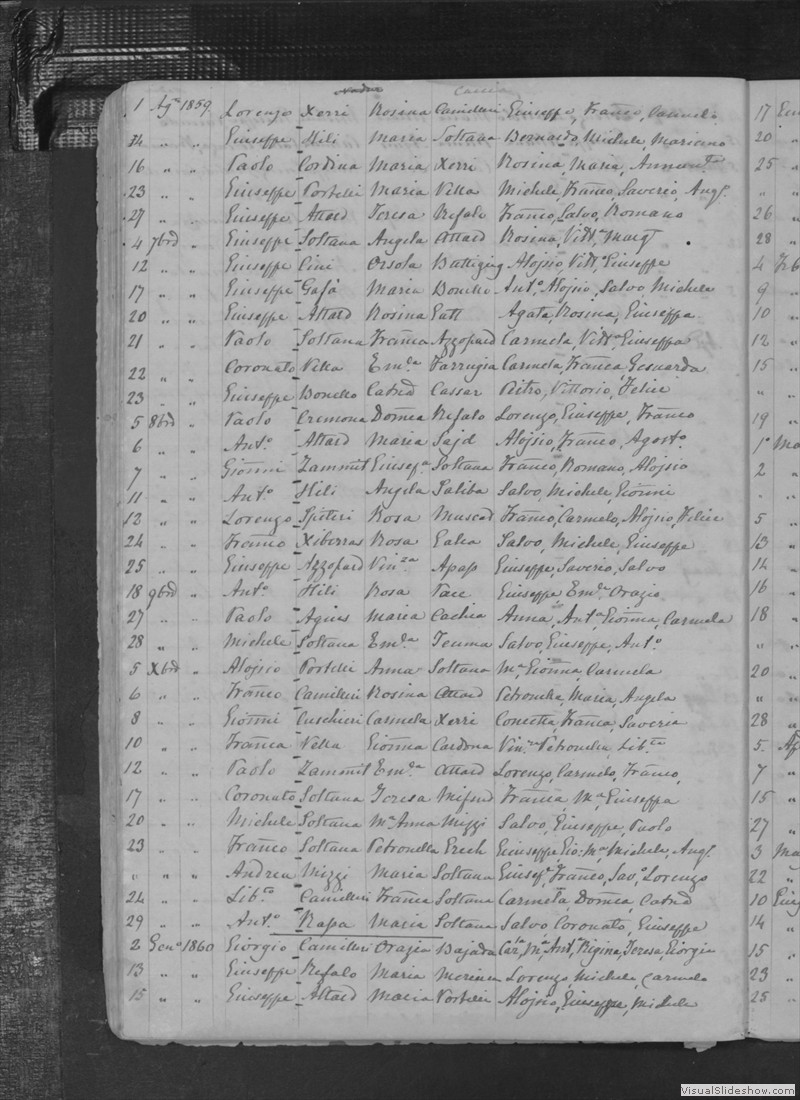 Madre Cascia
1 Agto 1859 Lorenzo Xerri Rosina Camilleri Giuseppe, Franco, Carmelo
" " Giuseppe Hili Maria Soltana Bernardo, Michele, Marciano
16 " " Paolo Cordina Maria Xerri Rosina, Maria, Annunta
23 " " Giuseppe Portelli Maria Vella Michele, Franco, Saverio, Angl.
27 " " Giuseppe Attard Teresa Refalo Franco, Salvo, Romano
4 7bre " Giuseppe Soltana Angela Attard Rosina, Vitta Margt
12 " " Giuseppe Cini Orsola Buttigieg Alojsio Vitta Giuseppe
17 " " Giuseppe Gafà Maria Bonello Anto, Alojsio, Salvo Michele
20 " " Giuseppe Attard Rosina Gatt Agata, Rosina, Giuseppa
21 " " Paolo Soltana Franca Azzopard Carmela, Vitta Giuseppa
22 " " Coronato Vella Emla Farrugia Carmela, Franca Gesuarda
23 " " Giuseppe Bonello Catnd Cassar Pietro, Vittorio, Felice
5 8bre " Paolo Cremona Domca Refalo Lorenzo, Giuseppe, Franco
6 " " Anto Attard Maria Sajd Alojsio, Franco, Agosto
7 " " Gionni Zammit Giusepa Soltana Franco, Romano, Alojsio
11 " " Anto Hili Angela Saliba Salvo, Michele, Gionni
12 " " Lorenzo Spiteri Rosa Muscad Franco, Carmelo, Alojsio, Felice
24 " " Franco Xiberras Rosa Galea Salvo, Michele, Giuseppe
25 " " Giuseppe Azzopard Vinza Apap Giuseppe, Saverio, Salvo
18 9bre " Anto Hili Rosa Pace Giuseppe Emla Orazio
27 " " Paolo Agius Maria Cachia Anna, Anta Gionna, Carmela
28 " " Michele Soltana Emla Teuma Salvo, Giuseppe, Anto
5 Xbre " Alojsio Portelli Anna Soltana Ma, Gionna, Carmela
6 " " Franco Camilleri Rosina Attard Petronilla, Maria, Angela
8 " " Gionni Cuschieri Carmela Xerri Concetta, Franca, Saveria
10 " " Franca Vella Gionna Cardona Vinza Petronilla, Libta
12 " " Paolo Zammit Emla Attard Lorenzo, Carmelo, Franco,
17 " " Coronato Soltana Teresa Mifsud Franca, Ma Giuseppa
20 " " Michele Soltana Ma Anna Mizzi Salvo, Giuseppe, Paolo
23 " " Franco Soltana Petronella Grech Giuseppe, Gio: Ma, Michele, Angl.
" " " Andrea Mizzi Maria Soltana Giuspe, Franco, Savo, Lorenzo
24 " " Libto Camilleri Franca Soltana Carmela, Domca, Catnd
29 " " Anto Rapa Maria Soltana Salvo Coronato, Giuseppe
2 Geno 1860 Giorgio Camilleri Orazia Bajada Carla, Ma Ant, Regina, Teresa, Giorgia
13 " " Giuseppe Refalo Maria Lorenzo, Michele, Carmelo
15 " " Giuseppe Attard Maria Portelli Alojsio, Giuseppe, Michele
17
20 "
25 "
" "
26 "
28 "
4
9 "
10 "
12 "
15 "
" "
19 "
1o
2 "
5 "
13 "
14 "
16 "
18 "
" "
20 "
" "
28 "
5.
7 "
15 "
27 "
3
22 "
10
14 "
15 "
23 "
25 "
VisualSlideshow.com